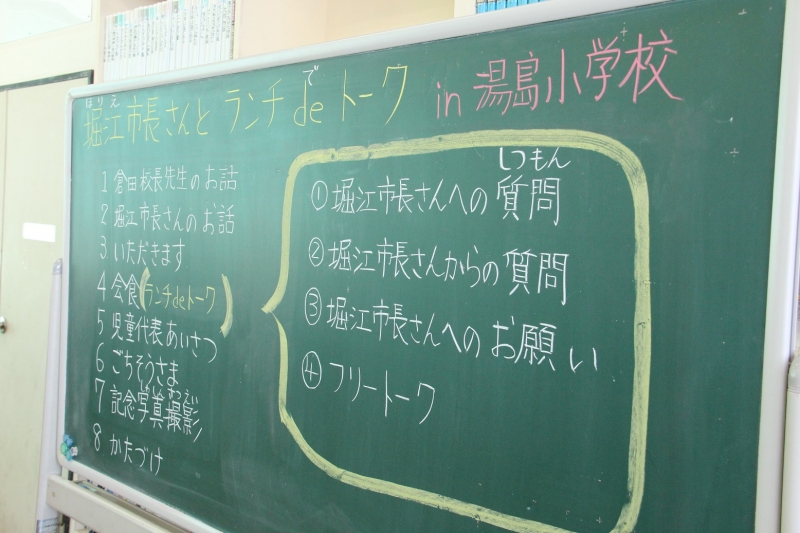 ほりえ で
堀江市長さんと ランチ de トーク in 湯島小学校
1 倉田校長先生のお話
2 堀江市長さんのお話
3 いただきます
4 会食(ランチ de トーク)
5 児童代表あいさつ
6 ごちそうさま
7 記念写真撮影
8 かたづけ
しつもん
① 堀江市長さんへの質問
② 堀江市長さんからの質問
③ 堀江市長さんへのお願い
④ フリートーク